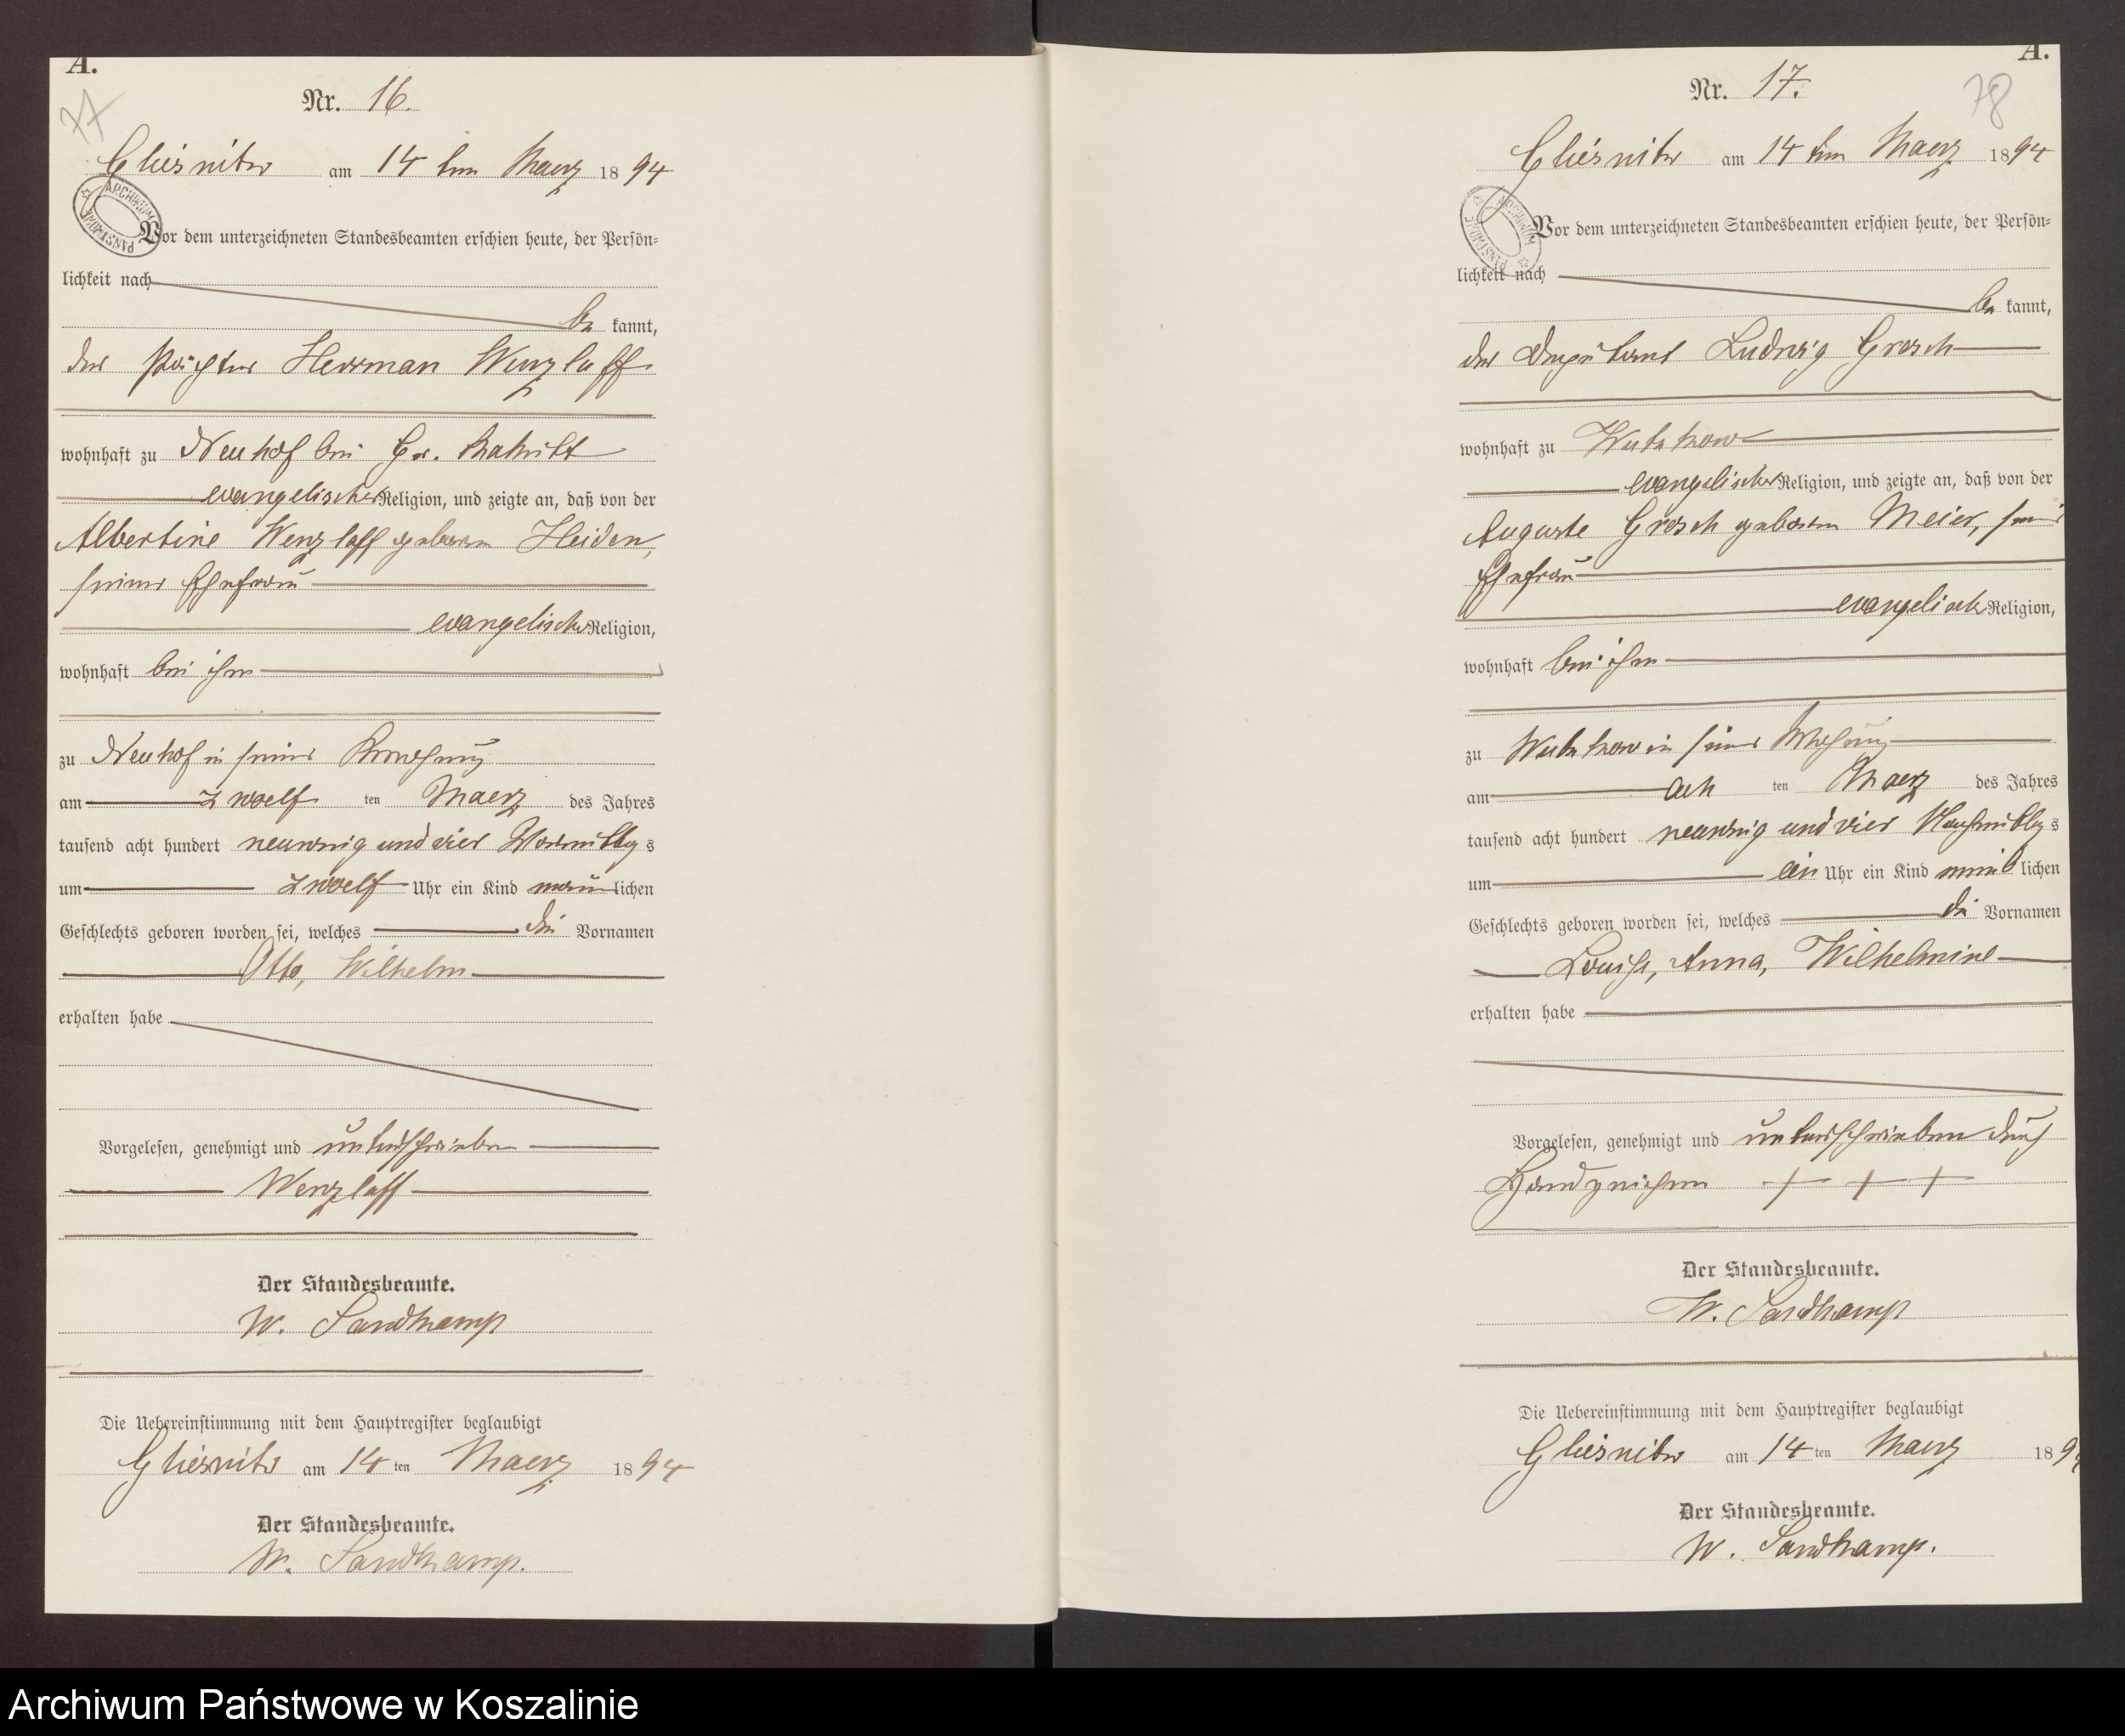 A.
77
Nr. 16.
Gliesnitz am 14ten Maerz 1894
ARCHIWUM PAŃSTWOWE
Vor dem unterzeichneten Standesbeamten erschien heute, der Persön=
lichkeit nach
be kannt,
der Pächter Herrman Wenzlaff
wohnhaft zu Neuhof bei Gr.
evangelischer Religion, und zeigte an, daß von der
Albertine Wenzlaff geboren Heiden,
seiner Ehefrau
evangelischer Religion,
wohnhaft bei ihm
zu Neuhof in seiner Wohnung
am zwoelf ten Maerz des Jahres
tausend acht hundert neunzig und vier Vormittags
um zwoelf Uhr ein Kind männlichen
Geschlechts geboren worden sei, welches die Vornamen
Otto, Wilhelm
erhalten habe
Vorgelesen, genehmigt und unterschrieben
Wenzlaff
Der Standesbeamte.
W. Sandkamp
Die Uebereinstimmung mit dem Hauptregister beglaubigt
Gliesnitz am 14 ten Maerz 1894
Der Standesbeamte.
W. Sandkamp.
A.
78
Nr. 17.
Gliesnitz am 14ten Maerz 1894
ARCHIWUM PAŃSTWOWE
Vor dem unterzeichneten Standesbeamten erschien heute, der Persön=
lichkeit nach
be kannt,
der Deputant Ludwig Grosch
wohnhaft zu Wutzkow
evangelischer Religion, und zeigte an, daß von der
Auguste Grosch geboren Meier, seiner
Ehefrau
evangelisch Religion,
wohnhaft bei ihm
zu Wutzkow in seiner Wohnung
am ach ten Maerz des Jahres
tausend acht hundert neunzig und vier Nachmittags
um ein Uhr ein Kind weiblichen
Geschlechts geboren worden sei, welches die Vornamen
Louise, Anna, Wilhelmine
erhalten habe
Vorgelesen, genehmigt und unterschrieben durch
Handzeichen + + +
Der Standesbeamte.
W. Sandkamp
Die Uebereinstimmung mit dem Hauptregister beglaubigt
Gliesnitz am 14 ten Maerz 1894
Der Standesbeamte.
W. Sandkamp.
Archiwum Państwowe w Koszalinie